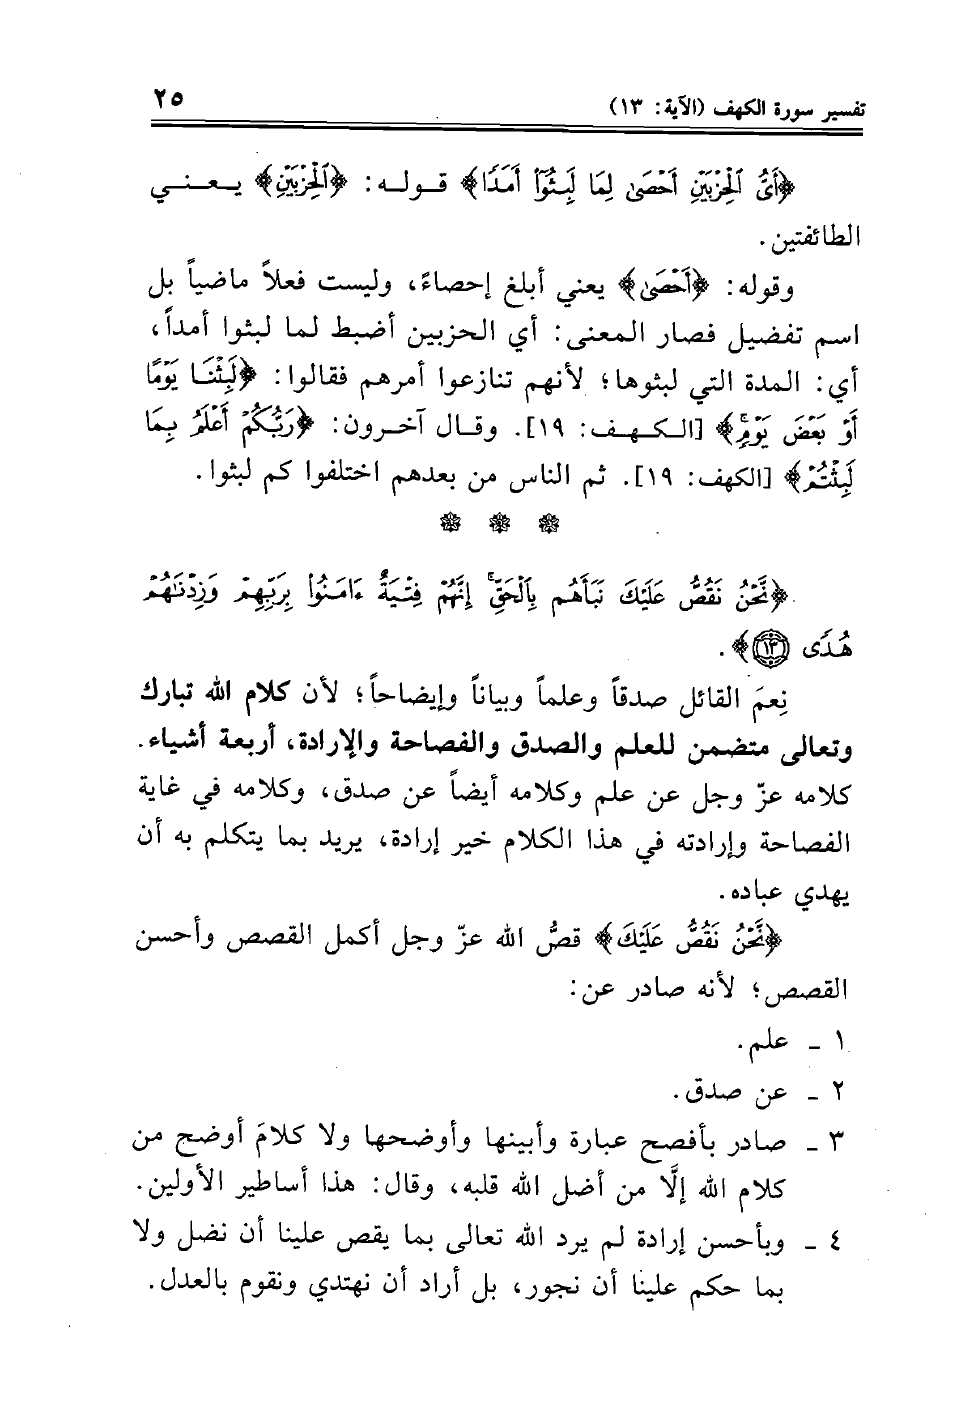 تفسير سورة الكهف (الآية: ١٣) ٢٥
﴿أَيُّ الْحِزْبَيْنِ أَحْصَىٰ لِمَا لَبِثُوٓا۟ أَمَدًا﴾ قوله: ﴿الْحِزْبَيْنِ﴾ يعني
الطائفتين.
وقوله: ﴿أَحْصَىٰ﴾ يعني أبلغ إحصاءً، وليست فعلاً ماضياً بل
اسم تفضيل فصار المعنى: أي الحزبين أضبط لما لبثوا أمداً،
أي: المدة التي لبثوها؛ لأنهم تنازعوا أمرهم فقالوا: ﴿لَبِثْنَا يَوْمًا
أَوْ بَعْضَ يَوْمٍ﴾ [الكهف: ١٩]. وقال آخرون: ﴿رَبُّكُمْ أَعْلَمُ بِمَا
لَبِثْتُمْ﴾ [الكهف: ١٩]. ثم الناس من بعدهم اختلفوا كم لبثوا.
﴿نَّحْنُ نَقُصُّ عَلَيْكَ نَبَأَهُم بِالْحَقِّ ۚ إِنَّهُمْ فِتْيَةٌ ءَامَنُوا۟ بِرَبِّهِمْ وَزِدْنَـٰهُمْ
هُدًى ١٣﴾.
نِعمَ القائل صدقاً وعلماً وبياناً وإيضاحاً؛ لأن كلام الله تبارك
وتعالى متضمن للعلم والصدق والفصاحة والإرادة، أربعة أشياء.
كلامه عزّ وجل عن علم وكلامه أيضاً عن صدق، وكلامه في غاية
الفصاحة وإرادته في هذا الكلام خير إرادة، يريد بما يتكلم به أن
يهدي عباده.
﴿نَّحْنُ نَقُصُّ عَلَيْكَ﴾ قصُّ الله عزّ وجل أكمل القصص وأحسن
القصص؛ لأنه صادر عن:
١ ـ علم.
٢ ـ عن صدق.
٣ ـ صادر بأفصح عبارة وأبينها وأوضحها ولا كلامَ أوضح من
كلام الله إلَّا من أضل الله قلبه، وقال: هذا أساطير الأولين.
٤ ـ وبأحسن إرادة لم يرد الله تعالى بما يقص علينا أن نضل ولا
بما حكم علينا أن نجور، بل أراد أن نهتدي ونقوم بالعدل.